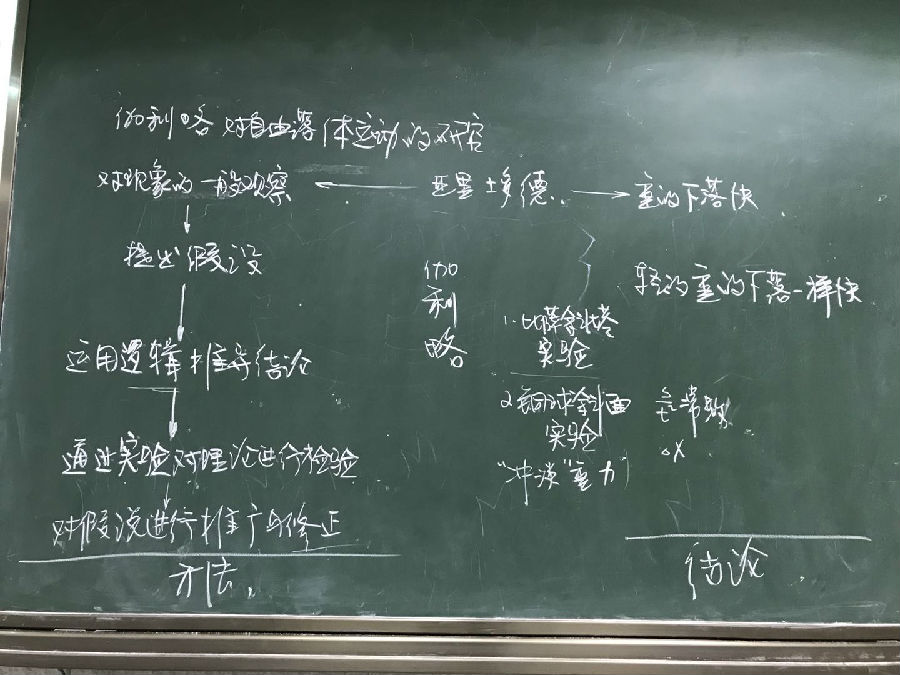 伽利略对自由落体运动的研究
对现象的一般观察 ← 亚里士多德 → 重的下落快
提出假设
伽利略
轻的重的下落一样快
1. 比萨斜塔
实验
运用逻辑推导结论
2. 铜球斜面
实验
常数
通过实验对理论进行检验
"冲淡"重力
对假说进行推广与修正
方法
结论